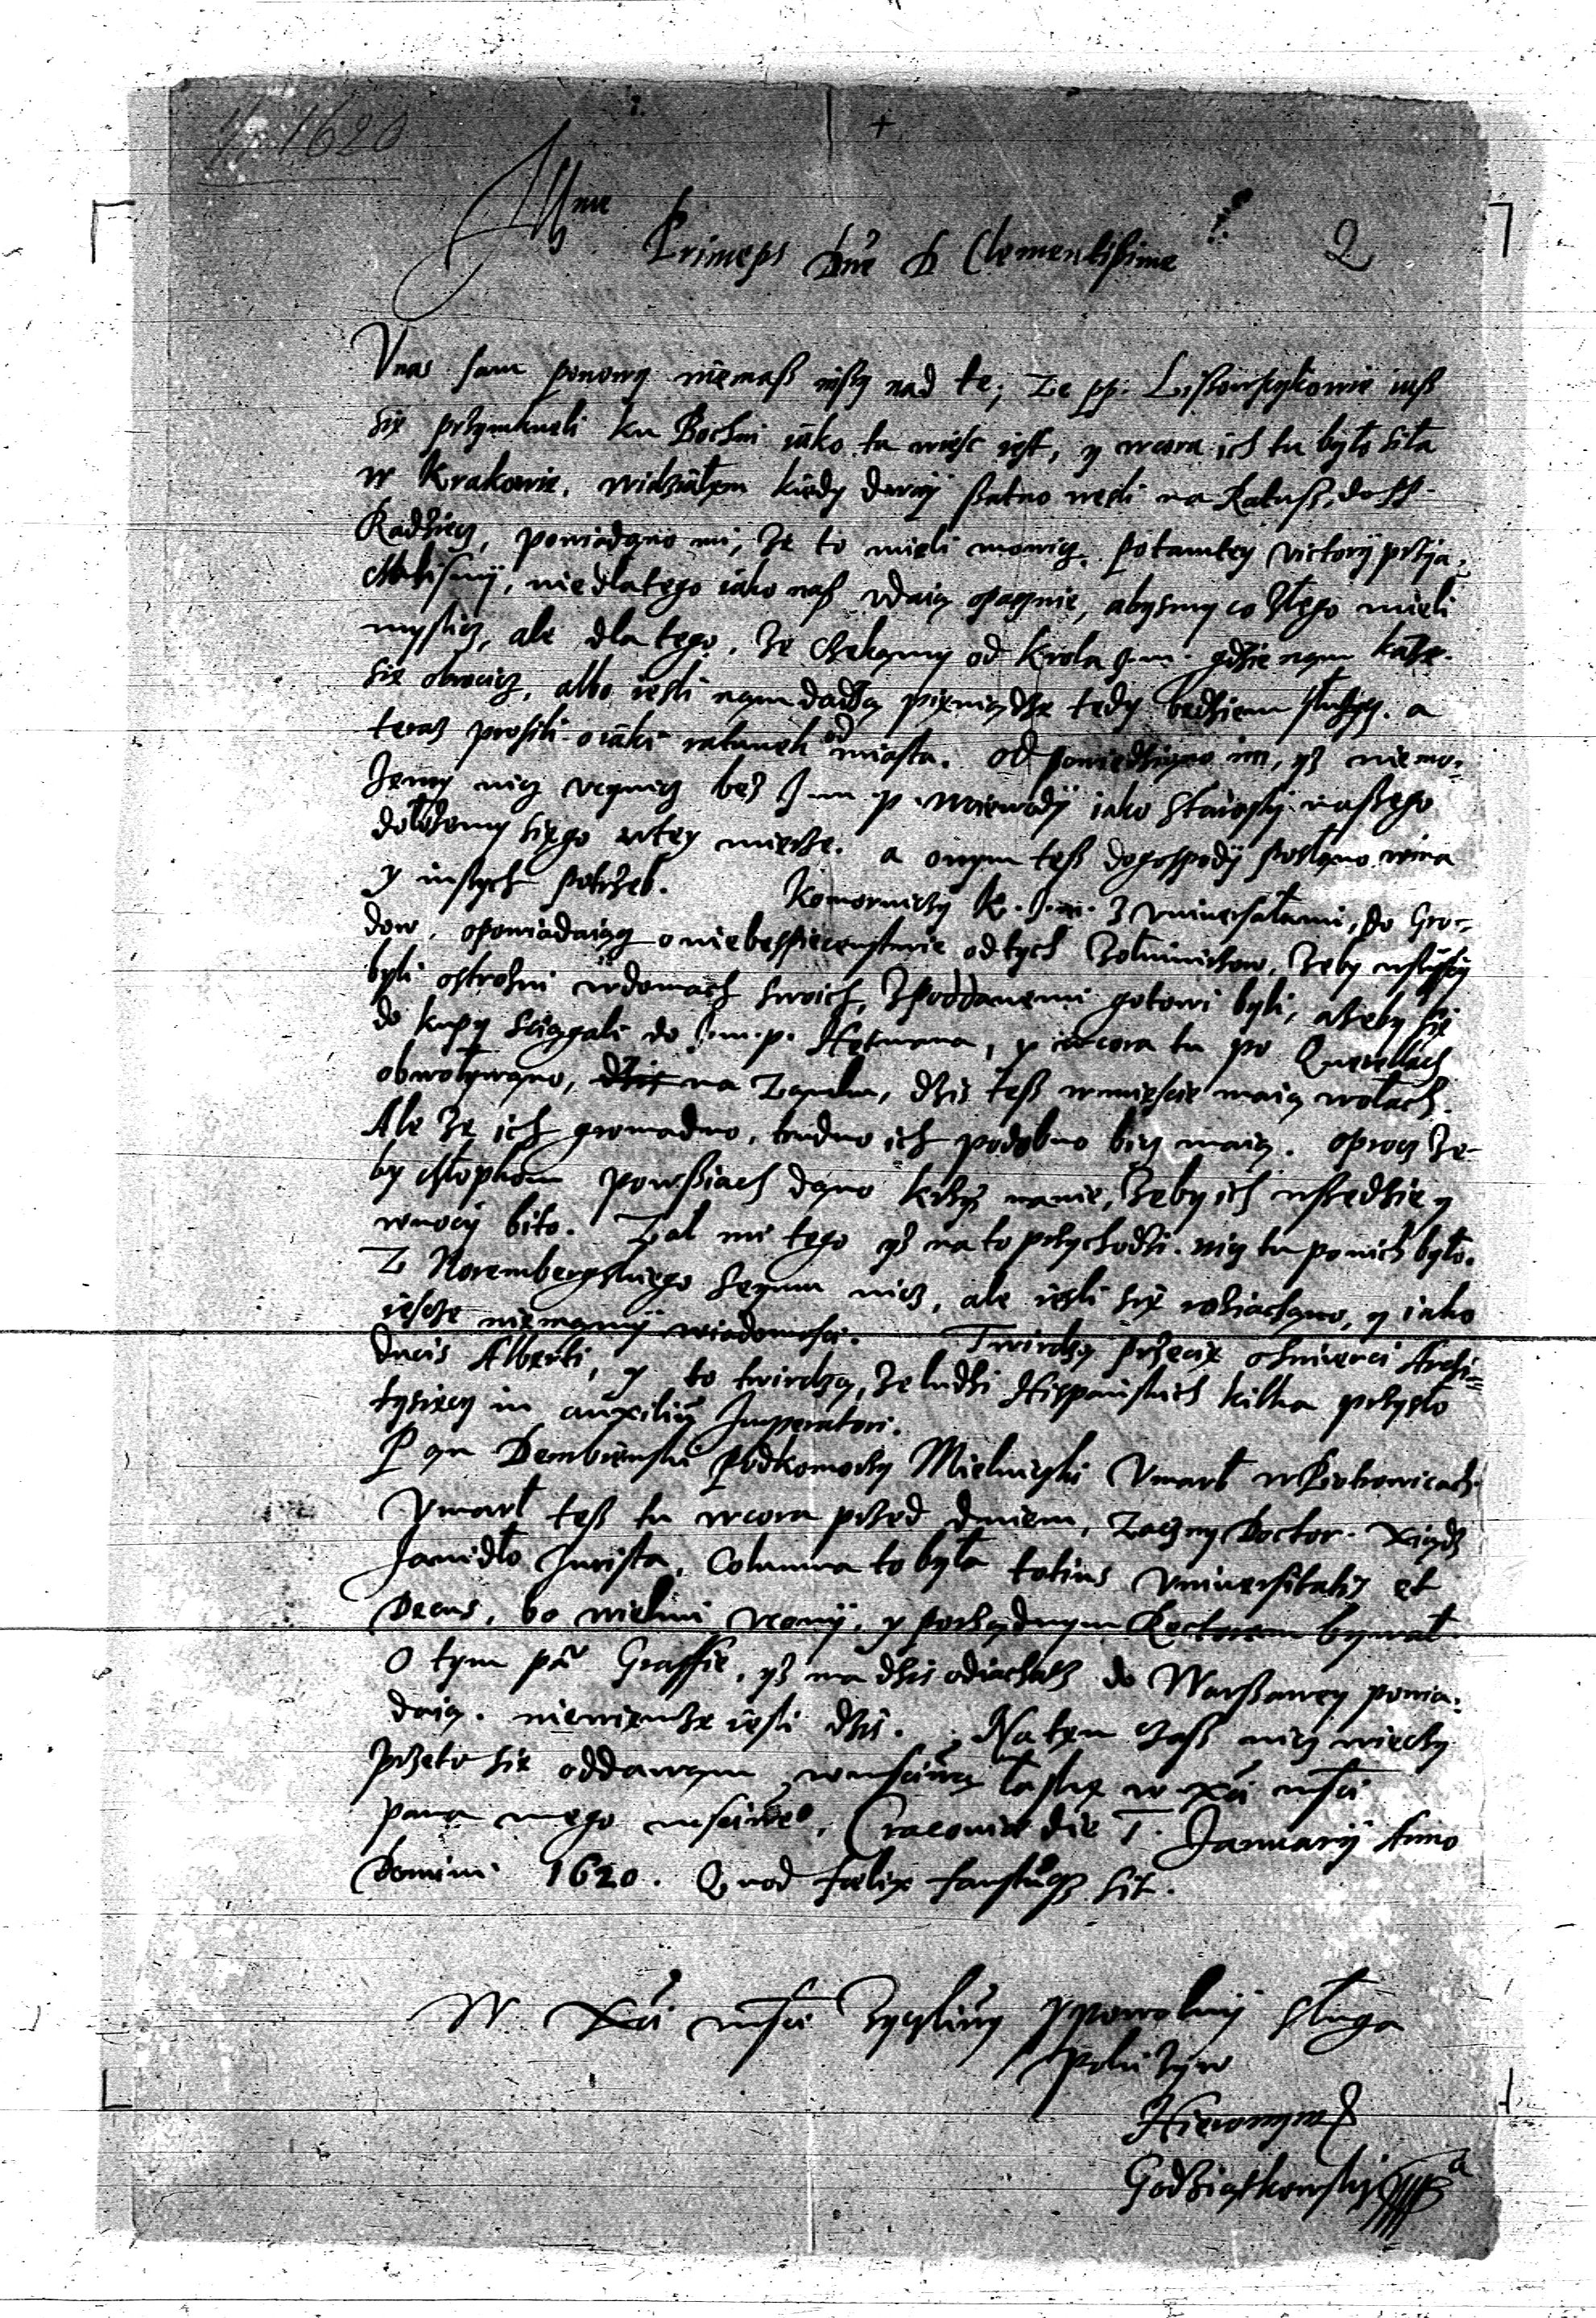 1620
Illme
Princeps Dne D Clementissime
2
V nas sam ponowy niemasz inszy nad te, Ze pp. Lissowczykowie iusz
się przymknęli ku Bochni iako tu wiesc iest, y wcora ich tu było siła
w Krakowie, widziałem kiedy dwaj szatno weszli na Ratusz, do pp.
Radziec, powiadano mi, że to mieli mowic. Po tamtey victoriy przija-
chalismy, nie dlatego iako nasz udaią opacznie, abysmy co złego mieli
myslic, ale dla tego, że czekamy od Krola J. m. gdzie nam każe
się obrocic, albo iesli nam dadzą pieniądze tedy będziem służyc. a
teraz prosili o iaki ratunek od miasta. Odpowiedziano im, yż niemo-
żemy nicz uczynicz bez J. m. p. woiewody iako Starosty naszego
dołożemy się go w tey mierze. a onym tesz do gospody posłano wina
y inszych potrzeb. Komorniczy K. J. m. z uniwersałami, do Gro-
dow, opowiadaiąc o niebespieczenstwie od tych Żołnierzow, żeby wszyscy
byli ostrożni w domach swoich, z poddanemi gotowi byli, ażeby się
do kupy sciągali do J. m. p. Hetmana, y wcora tu po Querellach
obwoływano, dziś na Zamku, dzis tesz w miescie maią wołach.
Ale że ich gromadno, trudno ich podobno bic maią. oprocz że-
by chłopkom po wsiach dano krzyż na nie, żeby ich wszedzie y
w nocy bito. Żal mi tego yż na to przychodzi. nic tu po nich było.
Z Norembergskiego Seymu nicz, ale iesli się roziachano, y iako
iescze niemamy wiadomosci. Twirdzą przecie o smierci Archi-
ducis Alberti, y to twirdzą, że ludzi Hispanskich kilka przyszło
tysięcy in auxiliū Imperatori.
Pan Dembinski Podkomorzy Mielnicki Umarł w Piotrowicach
Umarł tesz tu wcora przed dniem, zacny Doctor. Xiądz
Janidło Jurista, Columna to była totius Universitatis et
Decus, bo wielmi uczony, y porządnym Rectorem bywał
O tym pā Graffie, yż ma dzis odiachac do Warszawy powia-
daią. niewiemże iesli dzis. Na ten czasz nicz wieczy
przeto się oddawam w msciwą łaskę w Xci msci
pana mego msciweo. Cracoviae die 1. Januarij Anno
Domini 1620. Quod faelix faustūq; sit.
W Xci msci życzliwy y powolny sługa
poki żyw
Hieronym9
Godziątkowski